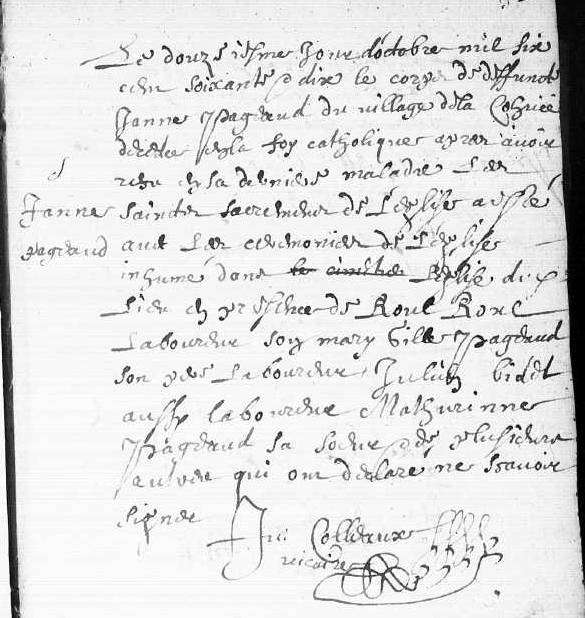 Le douziesme Jour d'octobre mil six
cent soixante & dix le corps de deffuncte
Janne Pageaud du village de la
decedee en la foy catholique apres avoir
receu en sa derniere maladie Les
d
Janne
pageaud
saintes sacrements de L'eglise a esté
avec Les ceremonies de L'eglise
inhumé dans le cimitier L'eglise du
Lieu en presence de Roul Roul
Laboureur son mary Gille Pageaud
son pere Laboureur Julien bidet
aussy laboureur Mathurinne
Pageaud sa soeur & de plusieurs
autres qui ont declaré ne scavoir
signer
Colleaux
vicaire